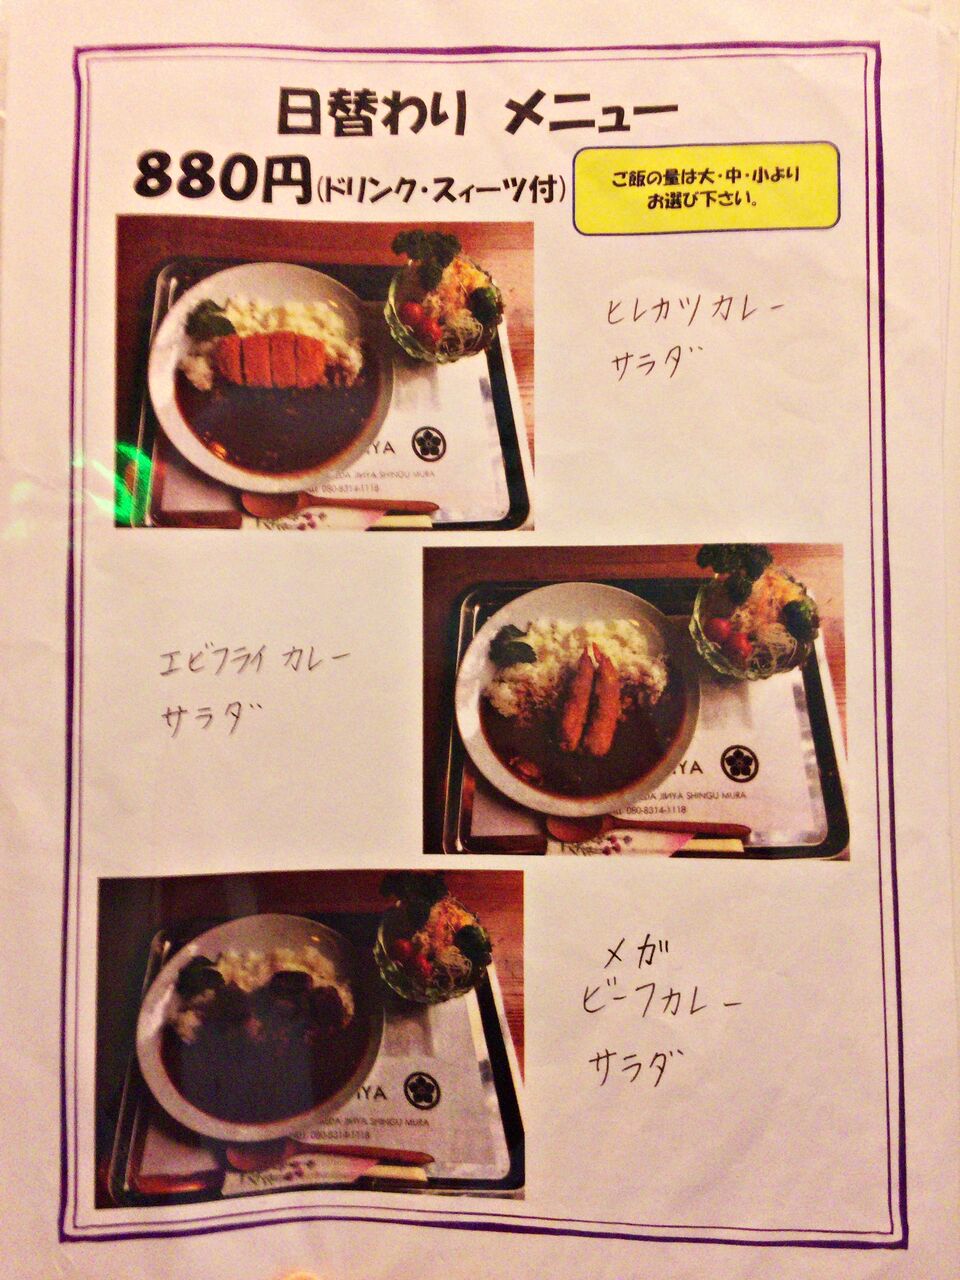 日替わり メニュー
880円(ドリンク・スィーツ付)
ご飯の量は大・中・小より
お選び下さい。
ヒレカツカレー
サラダ
JINYA SHINGU MURA
080-8314-1118
エビフライカレー
サラダ
JINYA SHINGU MURA
080-8314-1118
メガ
ビーフカレー
サラダ
JINYA SHINGU MURA
080-8314-1118